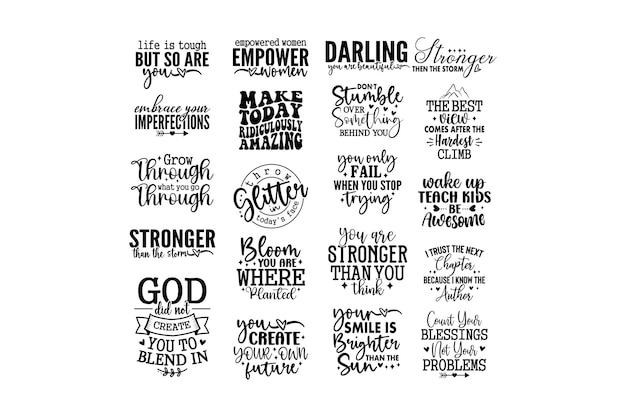 life is tough
BUT SO ARE
you
embrace your
IMPERFECTIONS
Grow
Through
what you go
Through
STRONGER
than the storm
GOD
did not
CREATE
YOU TO
BLEND IN
empowered women
EMPOWER
women
MAKE
TODAY
RIDICULOUSLY
AMAZING
throw
Glitter
in
today's face
Bloom
YOU ARE
WHERE
Planted
you
CREATE
YOUR OWN
future
DARLING
you are beautiful
DON'T
Stumble
OVER
Something
BEHIND YOU
you only
FAIL
WHEN YOU STOP
trying
You are
STRONGER
THAN YOU
think
YOUR
SMILE IS
Brighter
THAN THE
Sun
Stronger
THEN THE STORM
THE BEST
view
COMES AFTER THE
Hardest
CLIMB
wake up
TEACH KIDS
BE
Awesome
I TRUST THE NEXT
Chapter
BECAUSE I KNOW THE
Author
Count Your
BLESSINGS
Not Your
PROBLEMS